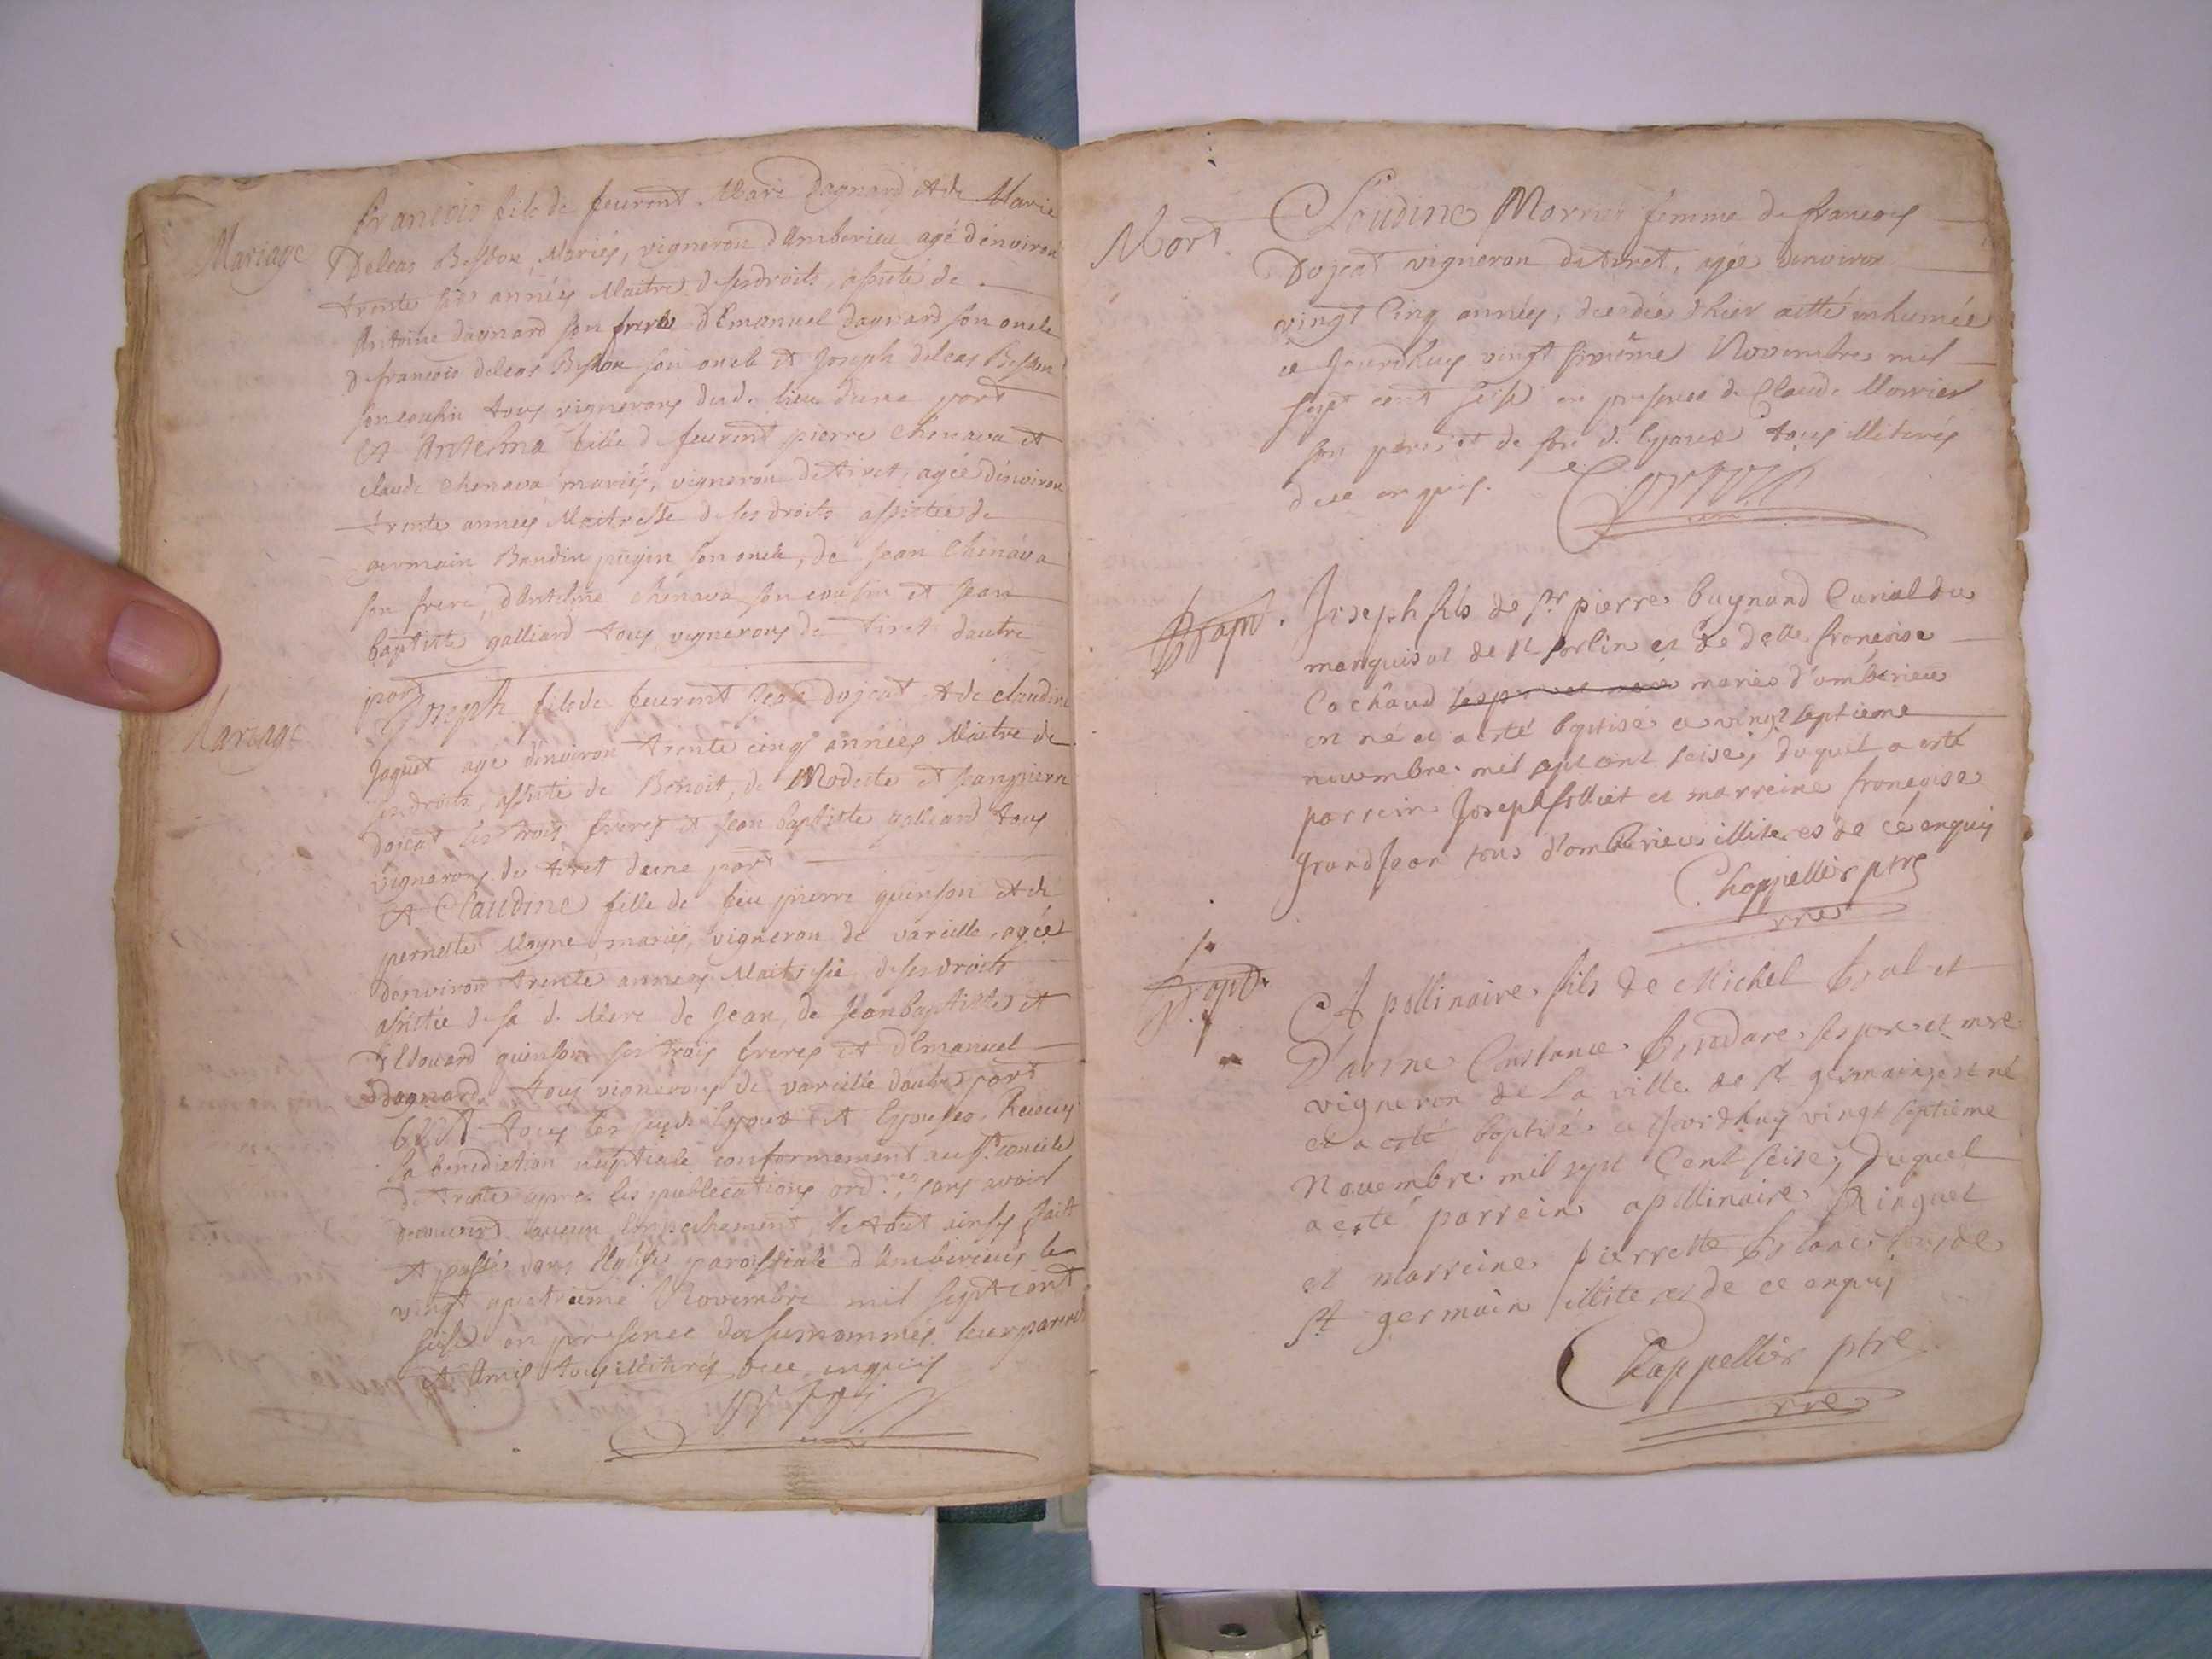 Mariage
françois fils de feurent Marc Dagnard et de Marie
Deleas Besson Mariés, vigneron d'Amberieu agé d'environ
trente six années Maitre de ses droits, assisté de
Antoine dagnard son frere d'Emanuel dagnard son oncle
de françois deleas Besson son oncle et Joseph deleas Besson
son cousin tous vignerons dud. lieu d'une part
et Antelma fille de feurent pierre Chenava et
claude Chenava mariés, vigneron de tiret, agée d'environ
trente années Maitresse de ses droits assistée de
germain Bondin pugin son oncle, de Jean Chenava
son frere, d'Antelme chenava son cousin et Jean
baptiste galliard tous vignerons de tiret d'autre
part
Mariage
Joseph fils de feurent Jean dojeat et de claudine
Jaquet agé d'environ trente cinq années Maitre de
ses droits, assisté de Benoit, de Modeste et Jeanpierre
dojeat ses trois freres et Jean baptiste galliard tous
vignerons de tiret d'une part
et Claudine fille de feu pierre guinson et de
pernette Moyne mariés, vigneron de vareille agée
d'environ trente années Maitresse de ses droits
assistée de sa d. Mere de Jean, de Jeanbaptiste et
d'Edouard guinson ses trois freres et d'Emanuel
dagnard tous vignerons de vareille d'autre part
tous les susds. Epoux et Epouses
la benediction nuptiale conformement au St. concile
de trente apres les publications ord.res, sans avoir
decouvert aucun Empechement, le tout ainsy fait
et passé dans l'Eglise paroissiale d'Amberieu le
vingt quatrieme Novembre mil sept cent
seise en presence des surnommés leurs parens
et Amis tous illiterés de ce enquis
Mort
Claudine Morrier femme de françois
Dojeat vigneron de tiret, agée d'environ
vingt cinq années, decedée d'hier a etté inhumée
ce Jourdhuy vingt sixième Novembre mil
sept cent seise en presence de Claude Morrier
son pere, et de son d. Epoux tous illiterés
de ce enquis.
Bapt.
Joseph fils de sr pierre buynand Curial du
marquisat de St Sorlin et de delle françoise
Cochaud ses pere et mere mariés d'ambérieu
est né et a esté baptisé ce vingt septieme
nuembre mil sept cent seise, duquel a esté
parrein Joseph folliet et marreine françoise
grand Jean tous d'ambérieu illiteres de ce enquis
Chappellier ptre
Bapt.
Apollinaire fils de Michel Bral et
D'anne Constance Brodare ses pere et mere
vigneron de La ville de St germain, est né
et a esté baptisé ce Jourdhuy vingt septieme
Novembre mil sept Cent seise, duquel
a esté parrein apollinaire Ringuet
et marreine pierrette Blanc tous de
St germain illiteres de ce enquis
Chappellier ptre